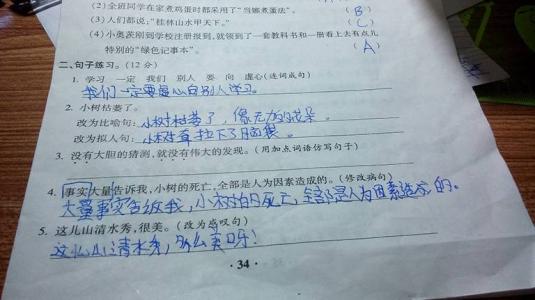 (2)全班同学在家煮鸡蛋时都采用了“当娜煮蛋法”。 (B)
(3)人们都说:“桂林山水甲天下。” (C)
(4)小奥茨刚到学校注册报到,就领到了一套教科书和一册看上去有点儿
特别的“绿色记事本”。 (A)
二、句子练习。(12分)
1. 学习 一定 我们 别人 要 向 虚心(连词成句)
我们一定要虚心向别人学习。
2. 小树枯萎了。
改为比喻句: 小树枯萎了,像无力的花朵。
改为拟人句: 小树耷拉下了脑袋。
3. 没有大胆的猜测,就没有伟大的发现。(用加点词语仿写句子)
4. 事实大量告诉我,小树的死亡,全部是人为因素造成的。(修改病句)
大量事实告诉我,小树的死亡,全部是人为因素造成的。
5. 这儿山清水秀,很美。(改为感叹句)
这儿山清水秀,多么美呀!
· 34 ·